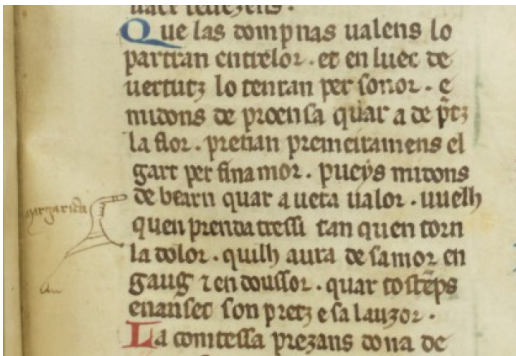 Que las dompnas ualens lo
partran entrelor. et en luec de
uertutz lo tenran per sonor. e
midons de proensa quar a de p̃tz
la flor. prenan premeiramens el
gart per fina mor. pueys midons
de bearn quar a ueta ualor. uuelh
quen prenda tressi tan quen torn
la dolor. quilh aura de samor en
gaug ⁊ en doussor. quar tostẽps
enanset son pretz e sa lauzor.
La comtessa prezans dona de
margarita